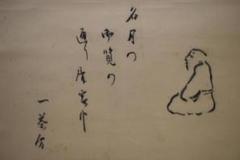 名月の
御覧の
通り屑家
一茶